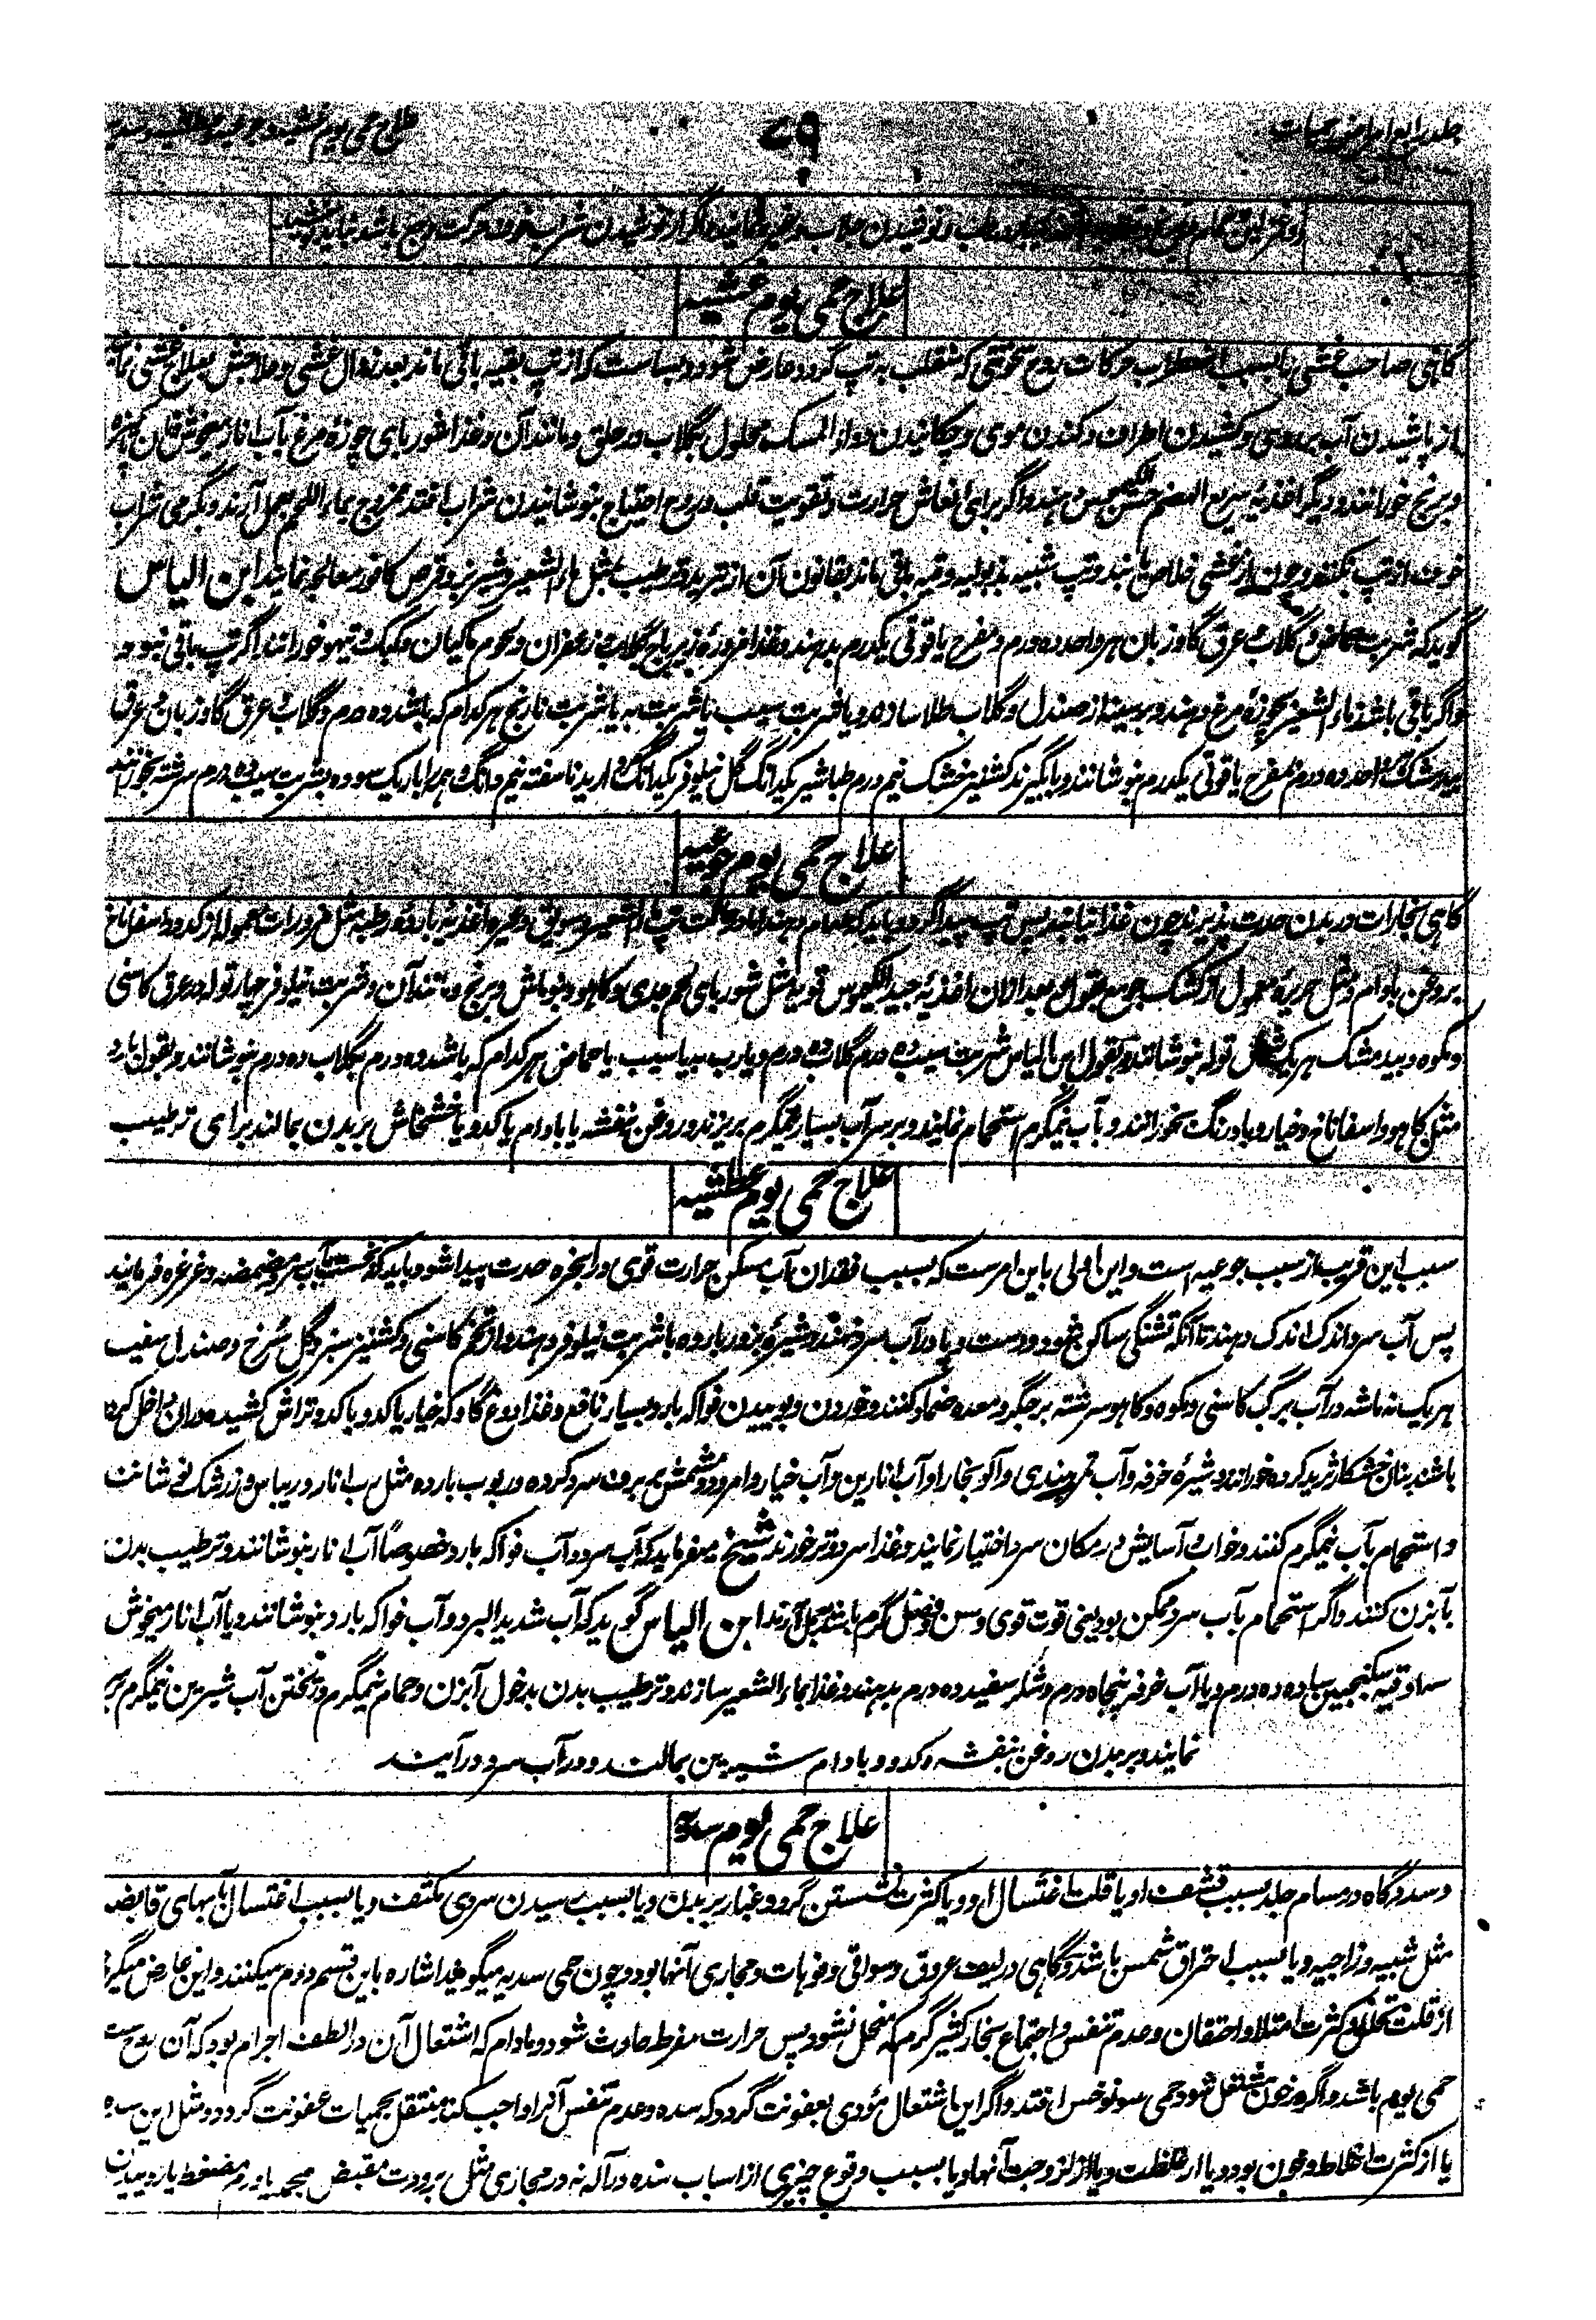 جلد رابع امراض حمیات
۷۹
علاج حمی یوم غشیه و جوعیه و عطشیه و سدیه
نوشیدن جلاب و اگر از نوشیدن شراب خوف حرکت باشد نباید نوشید
علاج حمی یوم غشیه
گاهی صاحب غشی را بسبب اضطراب حرکات روح سخونتی که منقلب به تپ گردد عارض شود و بساست که از تپ بقیه باقی ماند بعد زوال غشی و علاجش بعلاج غشی نمایند
از پاشیدن آب بر روی و کشیدن اطراف و کندن موی و چکانیدن دواء المسک محلول بگلاب در حلق و مانند آن و غذا شوربای چوزه مرغ بآب انار میخوش و نان پاکیزه
و برنج خورانند و دیگر اغذیه سریع الهضم حسن الکیموس دهند و اگر برای انعاش حرارت و تقویت قلب و روح احتیاج بنوشانیدن شراب افتد ممزوج بماء اللحم بعمل آرند و بگرمی شراب
خوف از تپ نکنند و چون از غشی خلاص یابند و تپ شبیه بذبولیه و قیه باقی ماند بقانون آن از تبرید و ترطیب بمثل ماء الشعیر و شیر بز و قرص کافور معالجه نمایند ابن الیاس
گوید که شربت حماض و گلاب و عرق گاوزبان هر واحد ده درم و مفرح یاقوتی یکدرم بدهند و غذا مزوره زیرباج بگلاب و زعفران و لحوم ماکیان و کبک و تیهو خورانند اگر تپ باقی نبود
و اگر باقی باشد ماء الشعیر بچوزه مرغ دهند و بر سینه از صندل و گلاب طلا سازند و یا شربت سیب یا شربت به یا شربت نارنج هر کدام که باشد ده درم و گلاب و عرق گاوزبان و عرق
بیدمشک هر واحد ده درم مفرح یاقوتی یکدرم بنوشانند و یا بگیرند کشنیز خشک نیم درم طباشیر یکدانگ گل نیلوفر یکدانگ مروارید ناسفته نیم دانگ همه را باریک سوده بشربت سیب ده درم سرشته بخورانند
علاج حمی یوم جوعیه
گاهی بخارات در بدن حدت پذیرند چون غذا نیابند پس تپ پیدا گردد باید که طعام دهند اما در حالت تپ ماء الشعیر و سویق و غیره اغذیه بارده رطبه مثل مزورات معموله از کدو و اسفاناخ
بروغن بادام و مثل حریره معمول از کشک جو مع بقول و بعد الآن اغذیه جید الکیموس قویه مثل شوربای لحم جدی و کاهو و بنوماش و برنج و مانند آن و شربت نیلوفر چهار توله در عرق کاسنی
و مکوه و بیدمشک هر یک توله بنوشانند و بقول ابن الیاس شربت سیب ده درم گلاب ده درم و یا رب به یا سیب یا حماض هر کدام که باشد ده درم بگلاب ده درم بنوشانند و بقول بارده
مثل کاهو و اسفاناخ و خیار و بادرنگ بخورانند و بآب نیمگرم استحمام نمایند و بر سر آب بسیار نیمگرم بریزند و روغن بنفشه یا بادام یا کدو یا خشخاش بر بدن بمالند برای ترطیب
علاج حمی یوم عطشیه
سبب این قریب از سبب جوعیه است و این اولی باین امر ست که بسبب فقدان آب مسکن حرارت قوی و در ابخره حدت پیدا شود باید که نخست بآب سرد مضمضه و غرغره فرمایند
پس آب سرد اندک اندک دهند تا آنکه تشنگی ساکن شود و دست و پا در آب سرد نهند و شیره بزور بارده با شربت نیلوفر دهند و از تخم کاسنی و کشنیز سبز و گل سرخ و صندل سفید
هر یک نه ماشه در آب برگ کاسنی و مکوه و کاهو سرشته بر جگر و معده ضماد کنند و خوردن و بوییدن فواکه بارده بسیار نافع و غذا دوغ گاو که خیار یا کدو یا کدو تراش کشیده دران داخل کرده
باشند بنان خشکار ثرید کرده خورانند و شیره خرفه و آب تمر هندی و آلو بخارا و آب انارین و آب خیار و امرود و مشمش ببرف سرد کرده و ربوب بارده مثل رب انار و ریباس و زرشک نوشانند
و استحمام بآب نیمگرم کنند و خواب و آسایش در مکان سرد اختیار نمایند و غذا سرد و تر خورند شیخ میفرماید که آب سرد و آب فواکه بارد خصوصاً آب انار بنوشانند و ترطیب بدن
بآبزن کنند و اگر استحمام بآب سرد ممکن بود یعنی قوت قوی و سن و فصل گرم باشد بعمل آرند ابن الیاس گوید که آب شدید البرد و آب فواکه بارد بنوشانند و یا آب انار میخوش
سه اوقیه سکنجبین ساده ده درم و یا آب خرفه پنجاه درم و شکر سفید ده درم بدهند و غذا بماء الشعیر سازند و ترطیب بدن بدخول آبزن و حمام نیمگرم و ریختن آب شیرین نیمگرم بر سر
نمایند و بر بدن روغن بنفشه و کدو و بادام شیرین بمالند و در آب سرد در آیند
علاج حمی یوم سدیه
و سده گاه در مسام جلد بسبب قشف او یا قلت اغتسال او و یا کثرت نشستن گرد و غبار بر بدن و یا بسبب رسیدن سردی مکثف و یا بسبب اغتسال بآبهای قابضه
مثل شبیه و زاجیه و یا بسبب احتراق شمس باشد و گاهی در لیف عروق و سواقی و فوهات و مجاری آنها بود و چون حمی سدیه میگویند اشاره باین قسم دوم میکنند و این عارض میگردد
از قلت تحلل و کثرت امتلا و احتقان و عدم تنفس و اجتماع بخار کثیر گرم که منحل نشود پس حرارت مفرط حادث شود و مادام که اشتعال آن در الطف اجرام بود که آن روح ست
حمی یوم باشد و اگر در خون مشتعل شود حمی سونوخس افتد و اگر این اشتعال مؤدی بعفونت گردد که سده و عدم تنفس آنرا واجب کند منتقل بحمیات عفونت گردد و مثل این سده
یا از کثرت اخلاط و خون بود و یا از غلظت و یا از لزوجت آنها و یا بسبب وقوع چیزی از اسباب سده در آله نه در مجاری مثل برودت مقبض مجمد یا ورم مضغط یا روییدن